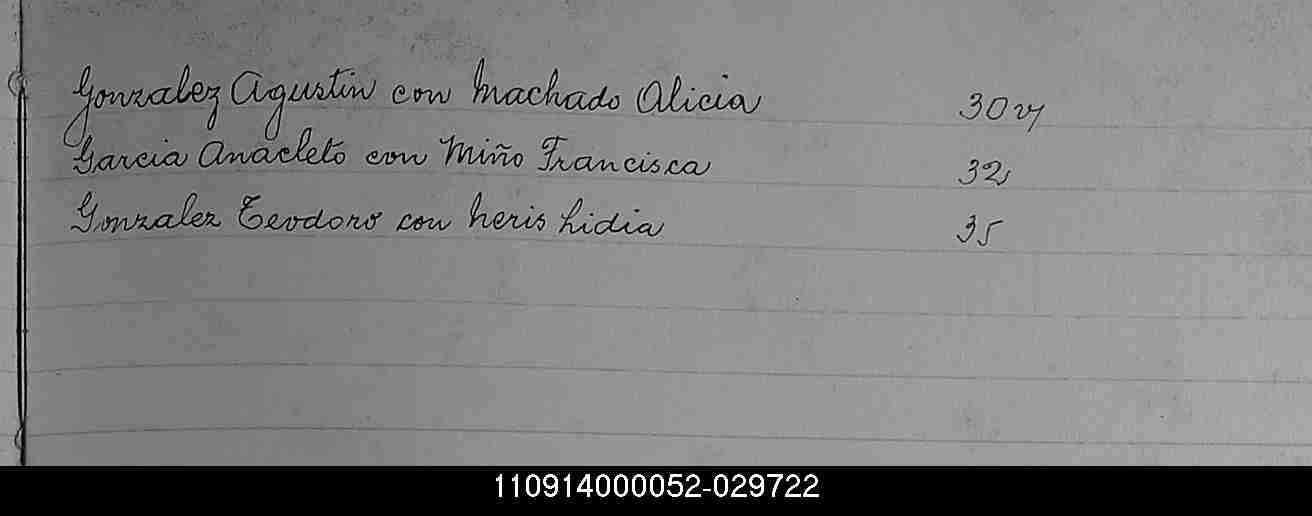 Gonzalez Agustin con Machado Alicia 30 v
Garcia Anacleto con Miño Francisca 32
Gonzalez Teodoro con Neris Lidia 35
110914000052-029722